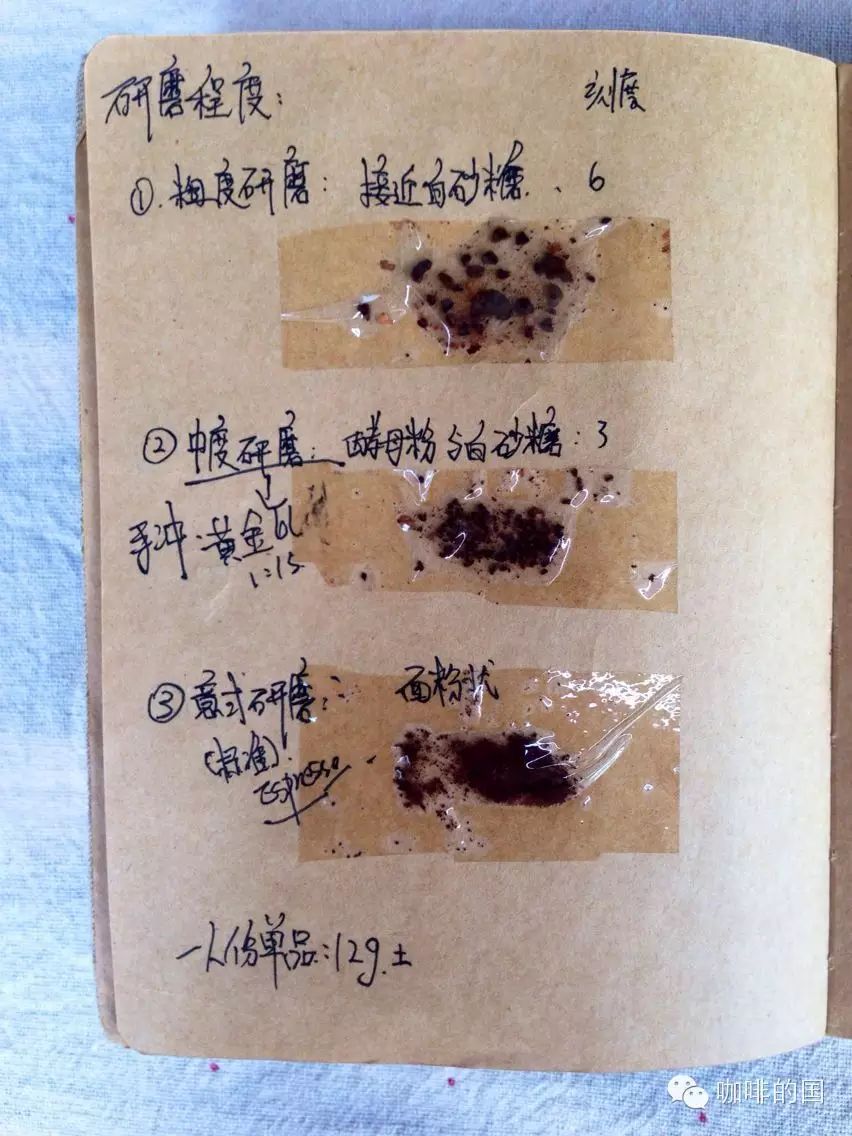 研磨程度： 刻度
①.粗度研磨：接近白砂糖、6
②中度研磨：酵母粉与白砂糖：3
手冲：黄金比
1:15
③意式研磨： 面粉状
(标准)
Espresso
一人份单品：12g.±
咖啡的国